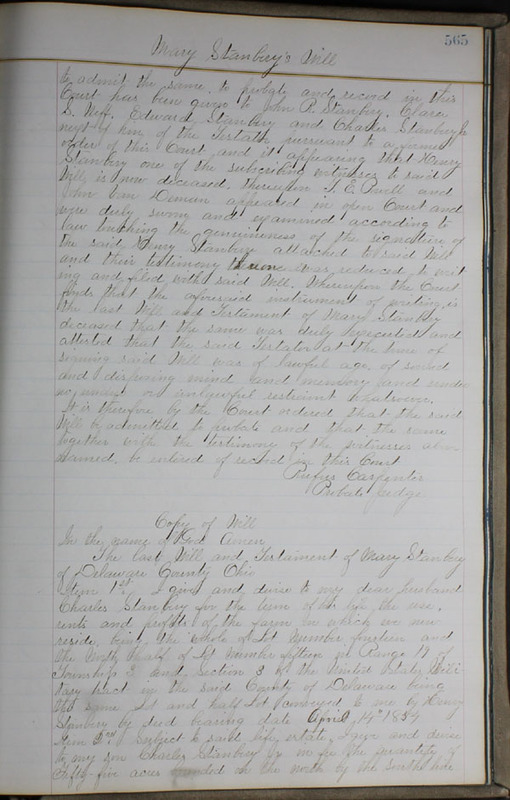 565
Mary Stanbery's Will
to admit the same to probate and record in this
Court has been given to John P. Stanbery, Clara
S. Neff, Edward Stanbery and Charles Stanbery Jr
next of kin of the Testate pursuant to a former
order of this Court and it appearing that Henry
Stanbery one of the subscribing witnesses to said
Will, is now deceased, thereupon T. E. Powell and
John Van Deman appeared in open Court and
were duly sworn and examined according to
law touching the genuineness of the signature of
the said Henry Stanbery attached to said Will
and their testimony was reduced to writ
ing and filed with said Will. Whereupon the Court
finds that the aforesaid instrument of writing is
the last Will and Testament of Mary Stanbery
deceased that the same was duly executed and
attested that the said Testator at the time of
signing said Will was of lawful age, of sound
and disposing mind and memory and under
no undue or unlawful restraint whatsoever.
It is therefore by the Court ordered that the said
Will be admitted to probate and that the same
together with the testimony of the witnesses abov
named, be entered of record in this Court
Rufus Carpenter
Probate Judge
Copy of Will
In the name of God Amen
The last Will and Testament of Mary Stanbery
of Delaware County Ohio
Item 1st I give and devise to my dear husband
Charles Stanbery for the term of his life the use,
rents and profits of the farm in which we now
reside, being the whole of Lot Number fourteen and
the North half of Lot Number fifteen in Range 19 of
Township 5 and Section 3 of the United States Mili-
tary tract in the said County of Delaware being
the same Lot and half Lot conveyed to me by Henry
Stanbery by deed bearing date April 14th 1854
Item Subject to said life estate, I give and devise
to my son Charles Stanbery Jr in fee the quantity of
Fifty-five acres bounded on the north by the South line